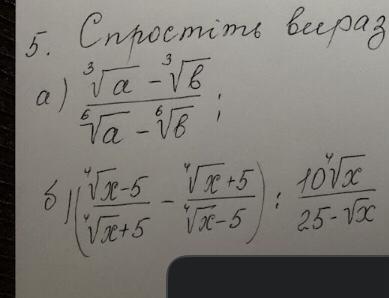 5. Спростіть вираз
а) (∛a - ∛b)/(⁶√a - ⁶√b);
б) ((⁴√x - 5)/(⁴√x + 5) - (⁴√x + 5)/(⁴√x - 5)) : (10⁴√x)/(25 - √x)